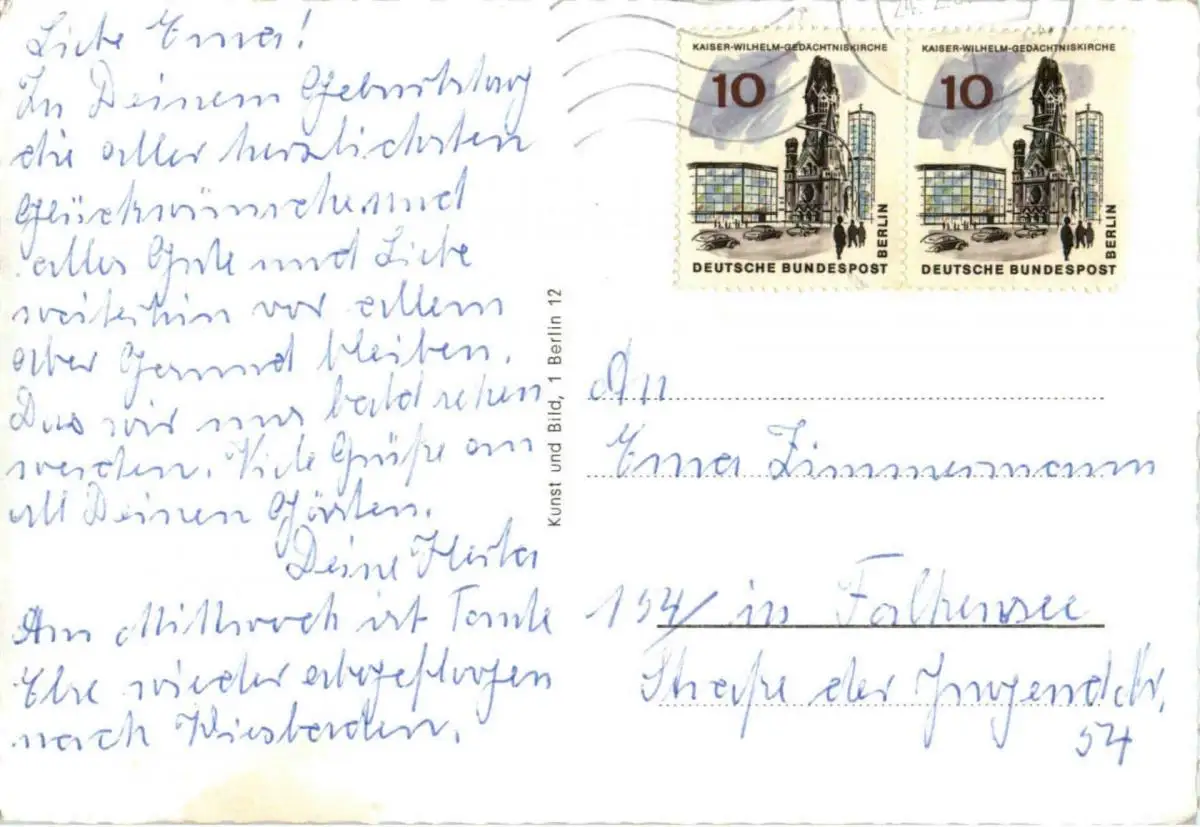 Liebe Erna!
Zu Deinem Geburtstag
die aller herzlichsten
Glückwünsche und
alles Gute und Liebe
weiterhin vor allem
aber Gesund bleiben.
Das wir uns bald sehen
werden. Viele Grüße an
all Deinen Gästen.
Deine Herta
Am Mittwoch ist Tante
Else wieder abgeflogen
nach Wiesbaden.
Kunst und Bild, 1 Berlin 12
KAISER-WILHELM-GEDÄCHTNISKIRCHE
10
DEUTSCHE BUNDESPOST
BERLIN
KAISER-WILHELM-GEDÄCHTNISKIRCHE
10
DEUTSCHE BUNDESPOST
BERLIN
An
Erna Zimmermann
154/ in Falkensee
Straße der Jugend Nr.
54